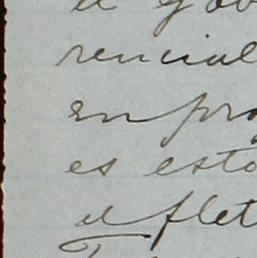 el gob
rencial
en pro
es esto
el flet